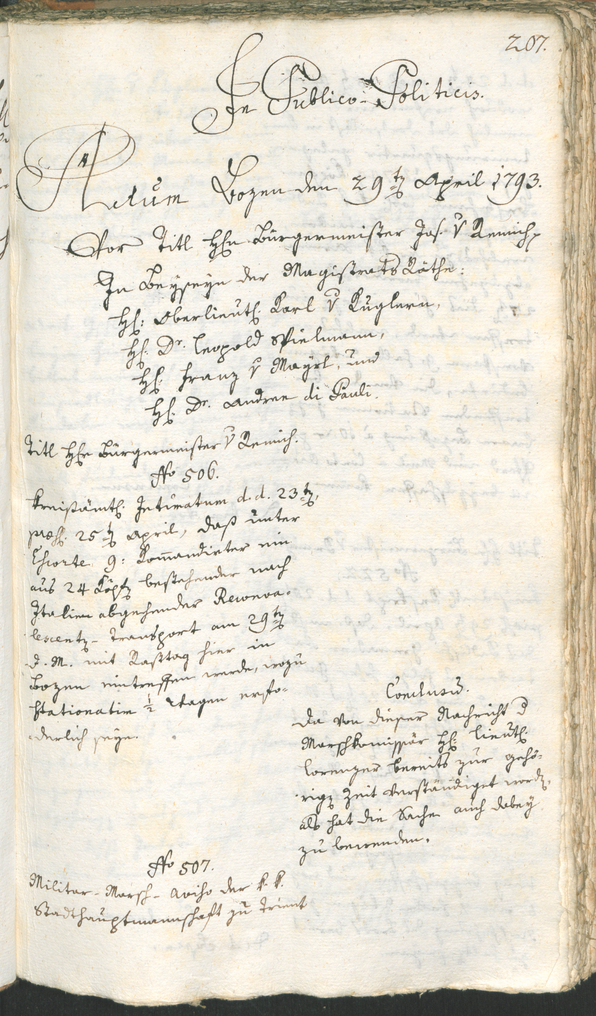 207.
In Publico-Politicis.
Actum Bozen den 29ten April 1793.
Vor Titl Hhn Bürgermeister Jos. v Remich,
In Beyseyn der Magistrats Räthe:
Hh: Oberlieuth: Karl v Kuglern,
Hh: Dr. Leopold Spielmann,
Hh: Franz v Mayrl, und
Hh: Dr. Andree di Pauli.
Titl Hhn Bürgermeister v Remich.
No 506.
Kreisämtl: Intimatum d. d. 23ten,
præs: 25ten April, daß unter
Eskorte 9: Kommandirter ein
aus 24 Köpfen bestehender nach
Italien abgehender Reconva-
lescenten-Transport am 29ten
d. M. mit Rasttag hier in
Bozen eintreffen werde, wozu
Stationatim ½ Wagen erfo-
derlich seye.
Conclusum.
Da von dieser Nachricht d
Marschkomissär Hh: Lieuth:
Lorenzer bereits zur gehö-
rigen Zeit verständiget worden,
als hat die Sache auch dabey
zu bewenden.
No 507.
Militar-Marsch-Aviso der k. k.
Stadthauptmannschaft zu Trient